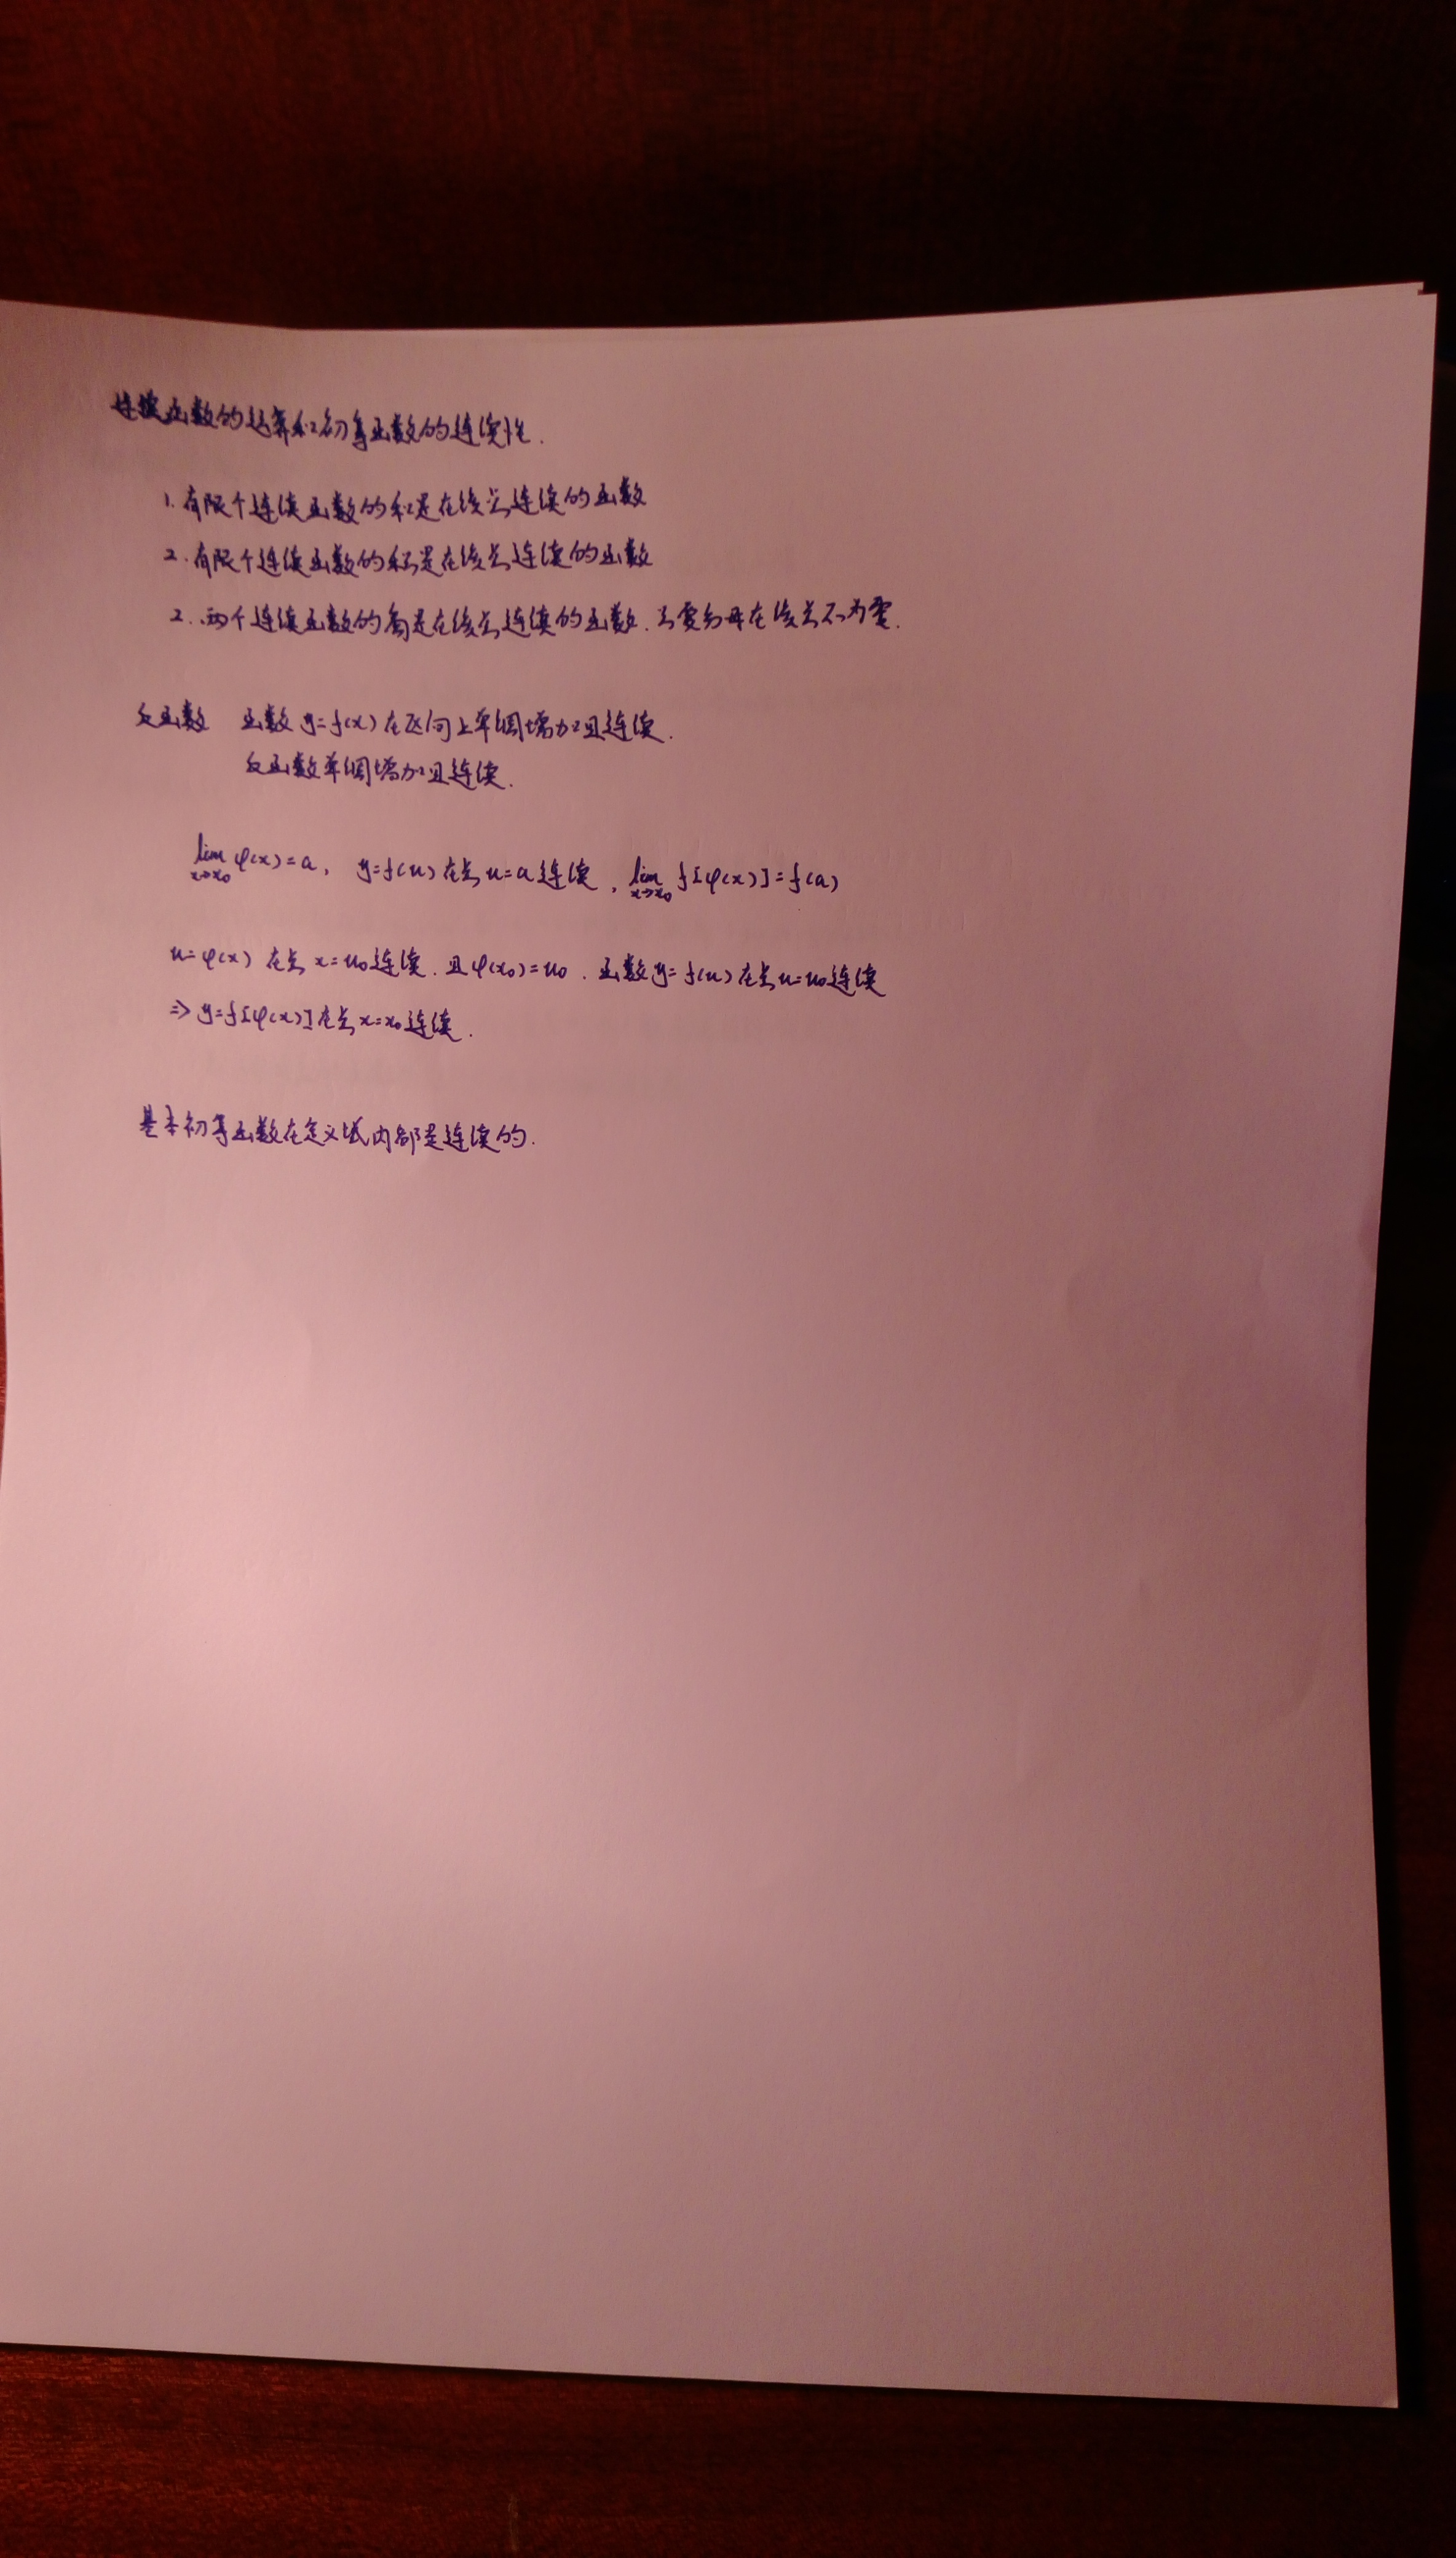 连续函数的运算和初等函数的连续性.
1. 有限个连续函数的和是在该点连续的函数
2. 有限个连续函数的积是在该点连续的函数
2. 两个连续函数的商是在该点连续的函数. 只要分母在该点不为零.
反函数 函数 y=f(x) 在区间上单调增加且连续.
反函数单调增加且连续.
lim x→x₀ φ(x)=a, y=f(u) 在点 u=a 连续, lim x→x₀ f[φ(x)]=f(a)
u=φ(x) 在点 x=u₀ 连续. 且 φ(x₀)=u₀. 函数 y=f(u) 在点 u=u₀ 连续
⇒ y=f[φ(x)] 在点 x=x₀ 连续.
基本初等函数在定义域内都是连续的.